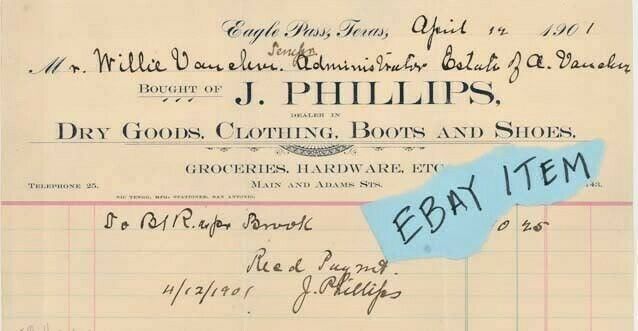 Eagle Pass, Texas, April 12 1901
Mr. Willie Vancleve. Administrator Estate of A. Vancleve
BOUGHT OF J. PHILLIPS,
DEALER IN
DRY GOODS, CLOTHING, BOOTS AND SHOES,
GROCERIES, HARDWARE, ETC
TELEPHONE 25. MAIN AND ADAMS STS. 43.
NIC TENGG, MFG. STATIONER, SAN ANTONIO.
EBAY ITEM
To Bl R. Book 0 25
Recd Paymt.
4/12/1901 J. Phillips